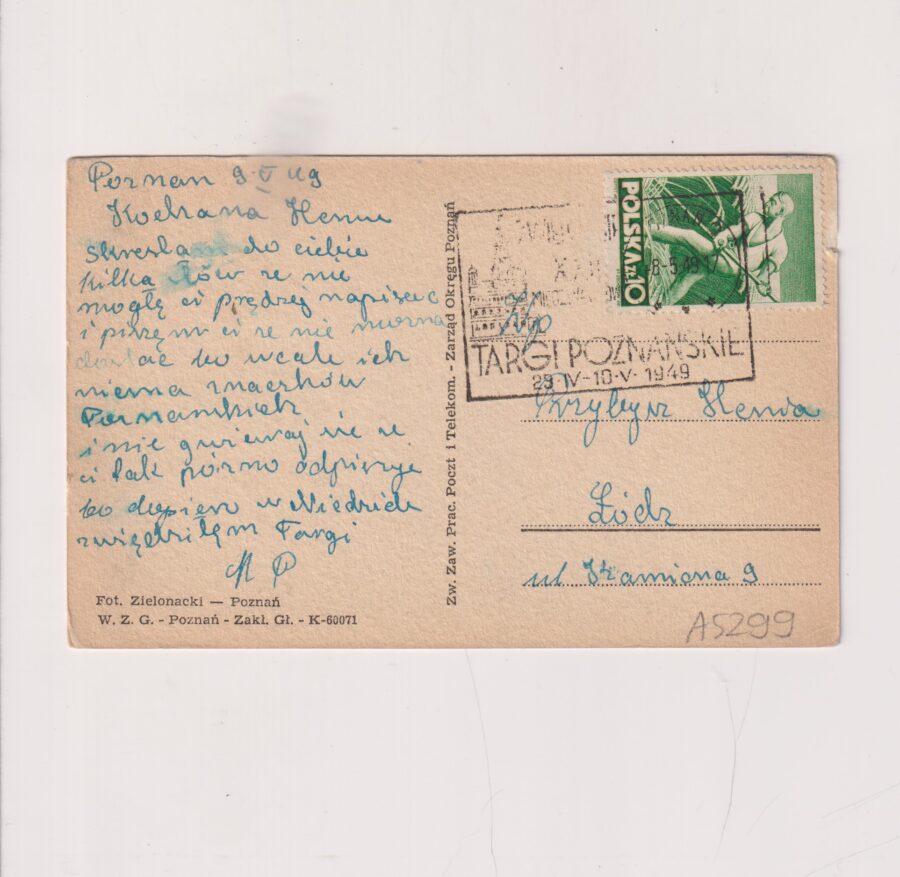 Poznan 9 V 49
Kochana Heniu
skreślam do ciebie
kilka słów ze nie
mogłę ci prędzej napisać
i piszęm ci ze nie można
dostać bo wcale ich
niema znaczków
Poznanskich
i nie gniewaj sie ze
ci tak pózno odpiszuje
bo depiero w Niedziele
zwiędziłęm Targi
M P
Fot. Zielonacki — Poznań
W. Z. G. - Poznań - Zakł. Gł. - K-60071
Zw. Zaw. Prac. Poczt i Telekom. - Zarząd Okręgu Poznań
POLSKA ZŁ 10
8-5.49-17
TARGI POZNAŃSKIE
29 IV - 10 - V - 1949
Henia
Łódz
ul Kamiena 9
A5299